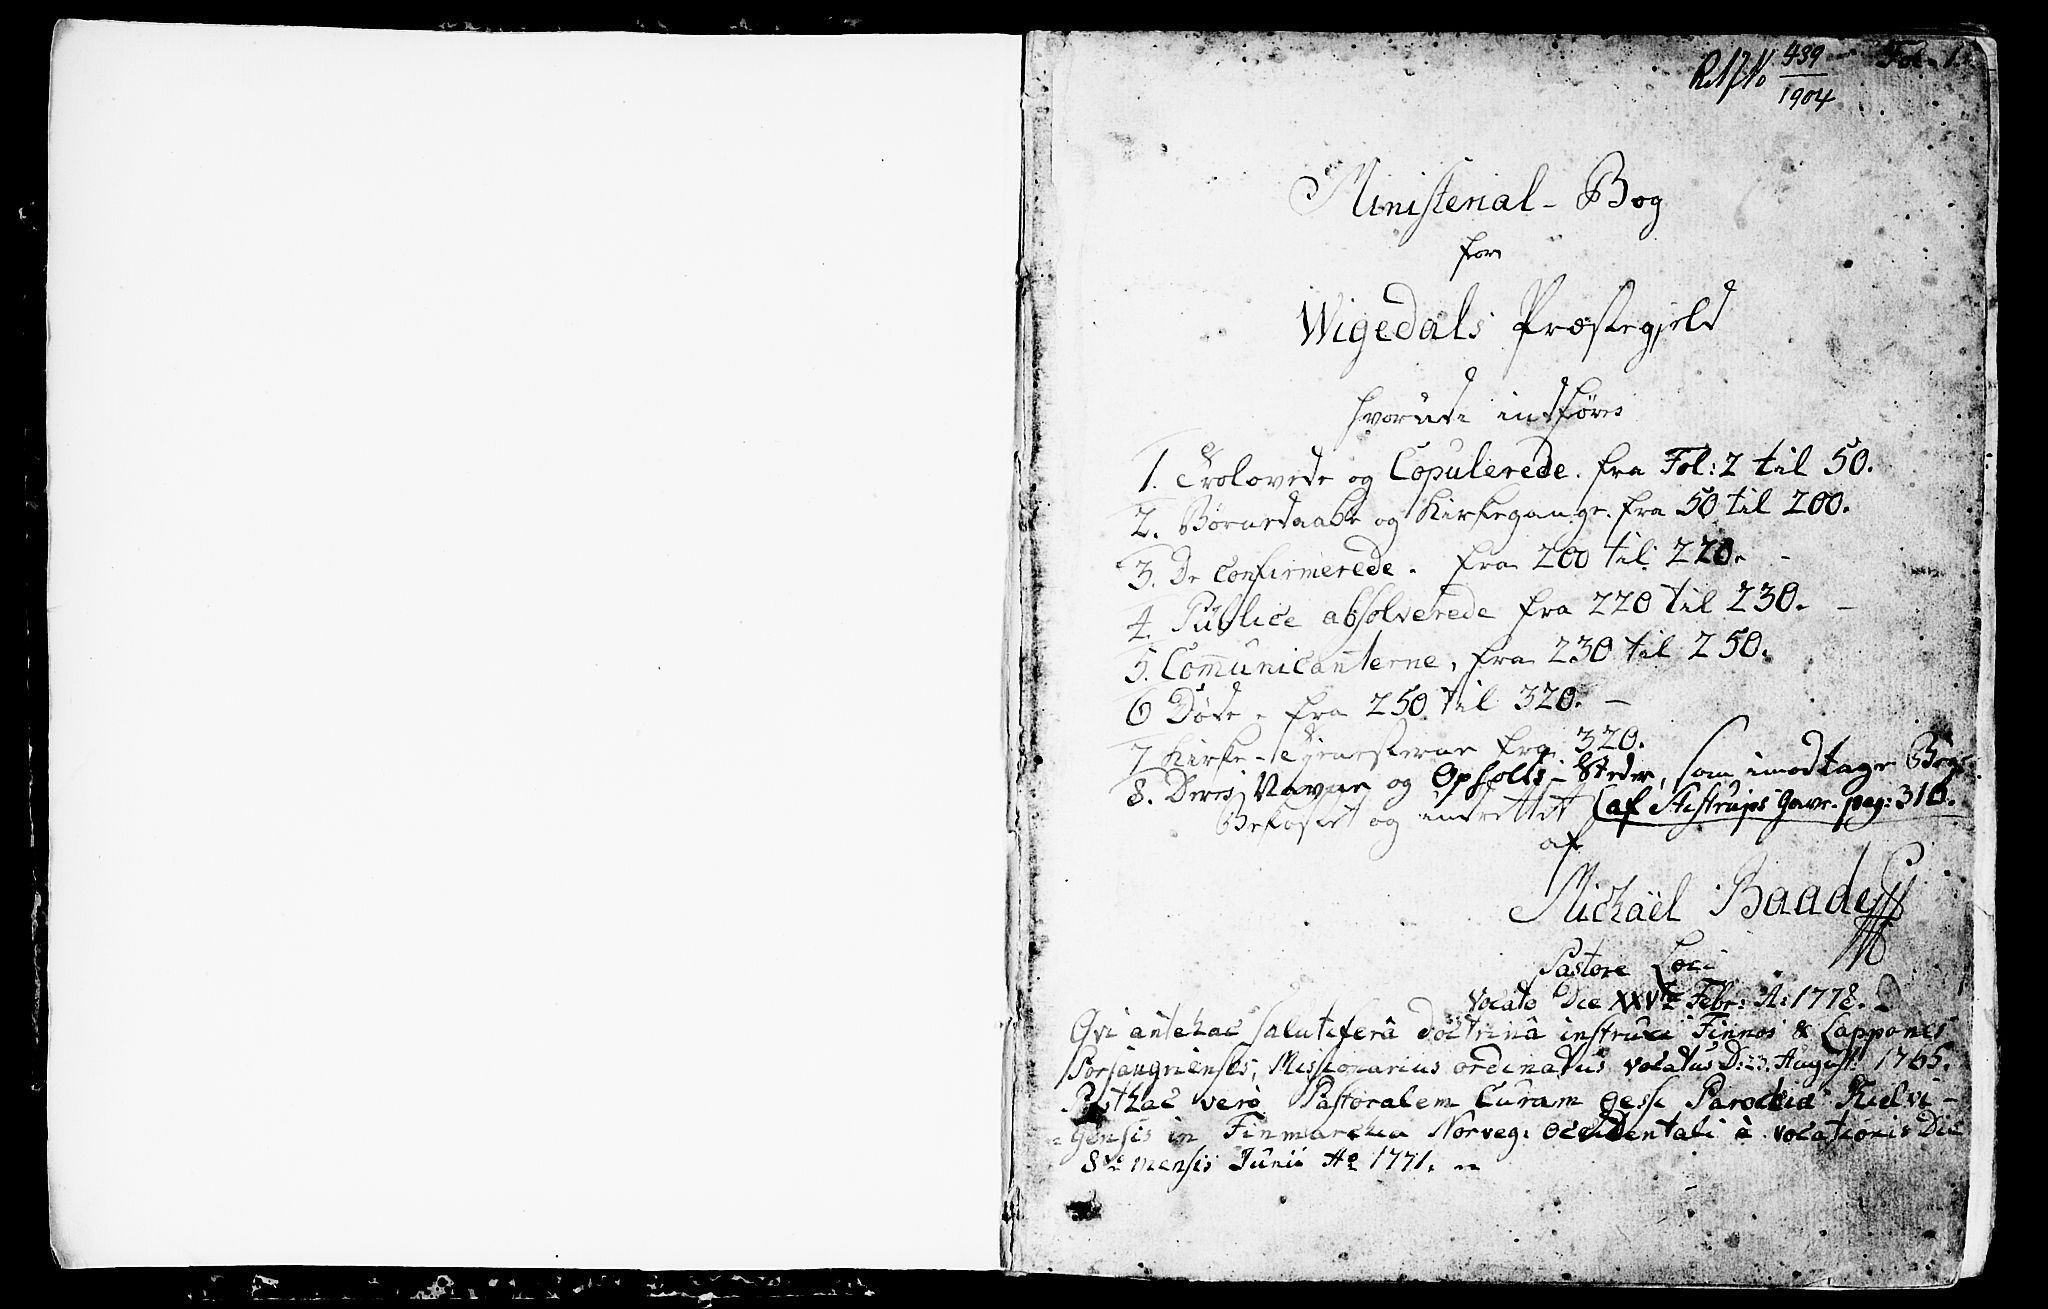 439
1904
Fol. 1.
Ministerial-Bog
for
Wigedals Præstegjeld
hvorudi indføres
1. Trolovede og Copulerede. fra Fol: 2 til 50.
2. Børnedaabe og Kirkegange. fra 50 til 200.
3. De Confirmerede. fra 200 til 220. -
4. Publice absolverede fra 220 til 230. -
5. Com̅unicanterne, fra 230 til 250.
6 Døde, fra 250 til 320. -
7 Kirke-Tjenesterne fra 320.
8. Deres Navne og Opholds-Steder, som imodtage Bøger
(af Stistrups Gave. pag: 310.
Bekostet og indrettet
af
Michaël Baade
Pastore Loci
Vocato Die XXVta Febr: A: 1778.
Qvi antehac salutiferâ doctrinâ instruxi Finnos & Lappones
Porsangrienses, Missionarius ordinatus vocatus D: 23. August: 1765.
Posthac verò Pastoralem Curam gessi Parochiæ Kielvi-
=gensis in Finmarchia Norveg: occidentali à vocationis Die
8va mensis Junii Ao 1771.